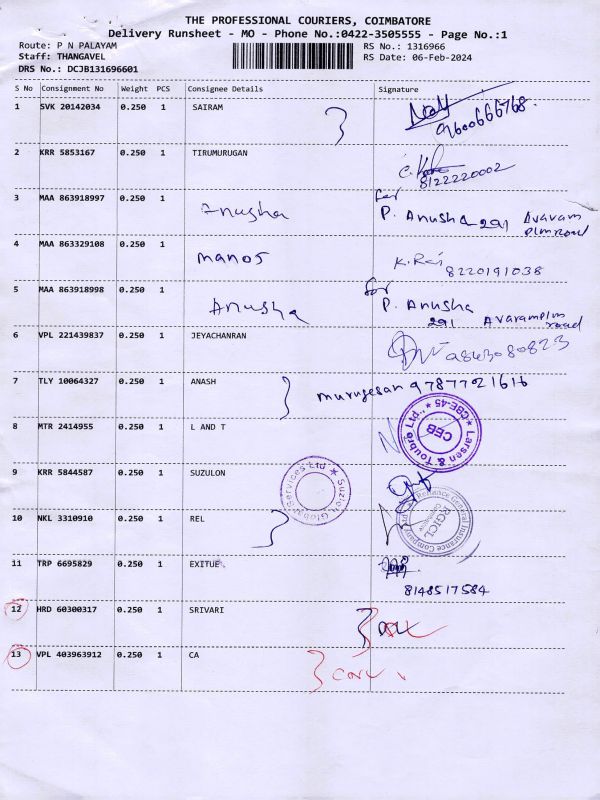 THE PROFESSIONAL COURIERS, COIMBATORE
Delivery Runsheet - MO - Phone No.:0422-3505555 - Page No.:1
Route: P N PALAYAM
Staff: THANGAVEL
DRS No.: DCJB131696601
RS No.: 1316966
RS Date: 06-Feb-2024
S No Consignment No Weight PCS Consignee Details Signature
1 SVK 20142034 0.250 1 SAIRAM
9600666768
2 KRR 5853167 0.250 1 TIRUMURUGAN
8122220002
3 MAA 863918997 0.250 1 Anusha for P. Anusha 291 Avaram
Plmroad
4 MAA 863329108 0.250 1 manoj K. Raj
8220191038
5 MAA 863918998 0.250 1 Anusha for P. Anusha
291 Avaramplm
road
6 VPL 221439837 0.250 1 JEYACHANRAN
9843080823
7 TLY 10064327 0.250 1 ANASH murugesan 9787721616
8 MTR 2414955 0.250 1 L AND T
Larsen & Toubro Ltd., CBE-45
CEB
9 KRR 5844587 0.250 1 SUZULON
Suzlon Global Services Ltd
10 NKL 3310910 0.250 1 REL
Reliance General Insurance Company Ltd
RGICL
Coimbatore
11 TRP 6695829 0.250 1 EXITUE
8148517584
12 HRD 60300317 0.250 1 SRIVARI
13 VPL 403963912 0.250 1 CA